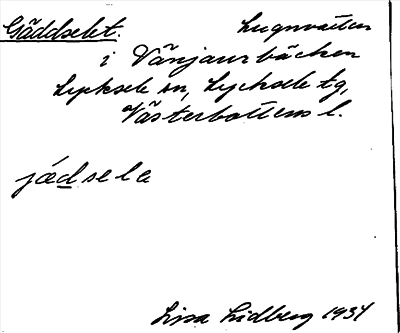 Gäddselet. Lugnvatten
i Vänjaurbäcken
Lycksele sn, Lycksele tg,
Västerbottens l.
jädsela
Lisa Lidberg 1934